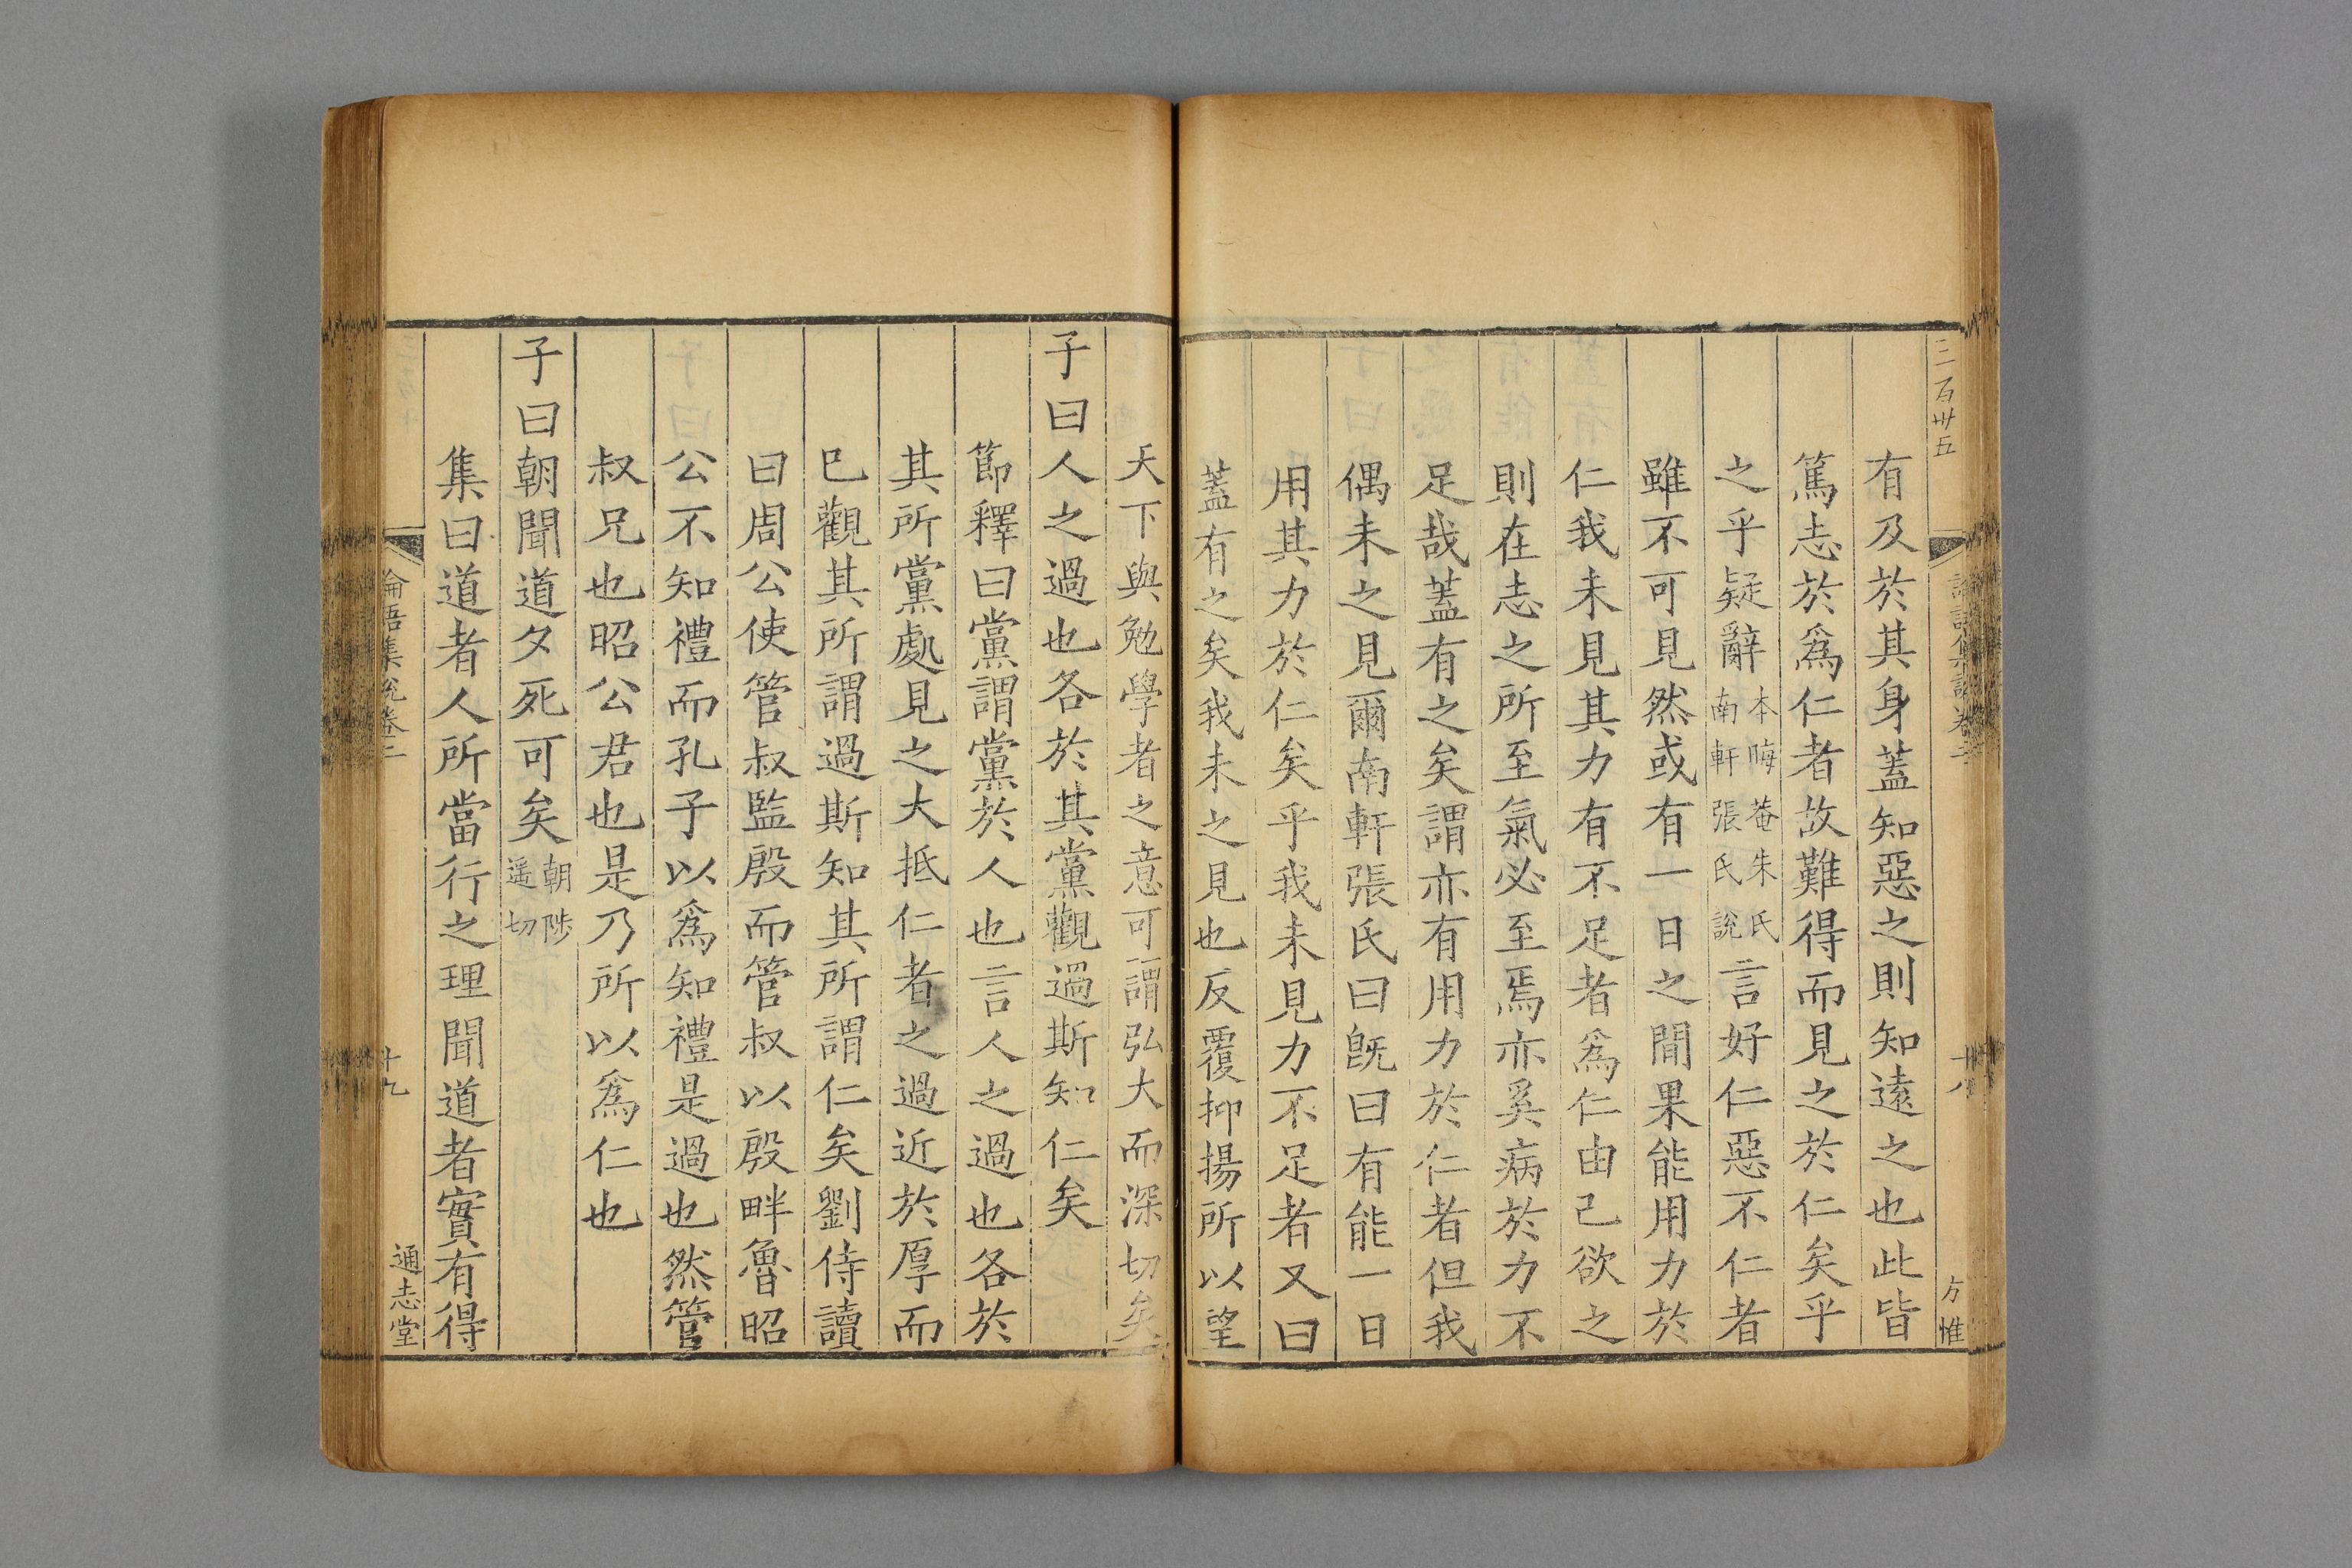 三百卅五
十八
方惟
有及於其身蓋知惡之則知遠之也此皆
篤志於爲仁者故難得而見之於仁矣乎
之乎疑辭本晦菴朱氏南軒張氏說言好仁惡不仁者
雖不可見然或有一日之間果能用力於
仁我未見其力有不足者爲仁由己欲之
則在志之所至氣必至焉亦奚病於力不
足哉蓋有之矣謂亦有用力於仁者但我
偶未之見爾南軒張氏曰旣曰有能一日
用其力於仁矣乎我未見力不足者又曰
蓋有之矣我未之見也反覆抑揚所以望
天下與勉學者之意可謂弘大而深切矣
子曰人之過也各於其黨觀過斯知仁矣
節釋曰黨謂黨於人也言人之過也各於
其所黨處見之大抵仁者之過近於厚而
已觀其所謂過斯知其所謂仁矣劉侍讀
曰周公使管叔監殷而管叔以殷畔魯昭
公不知禮而孔子以爲知禮是過也然管
叔兄也昭公君也是乃所以爲仁也
子曰朝聞道夕死可矣朝陟遥切
集曰道者人所當行之理聞道者實有得
論語集說卷二
十九
通志堂